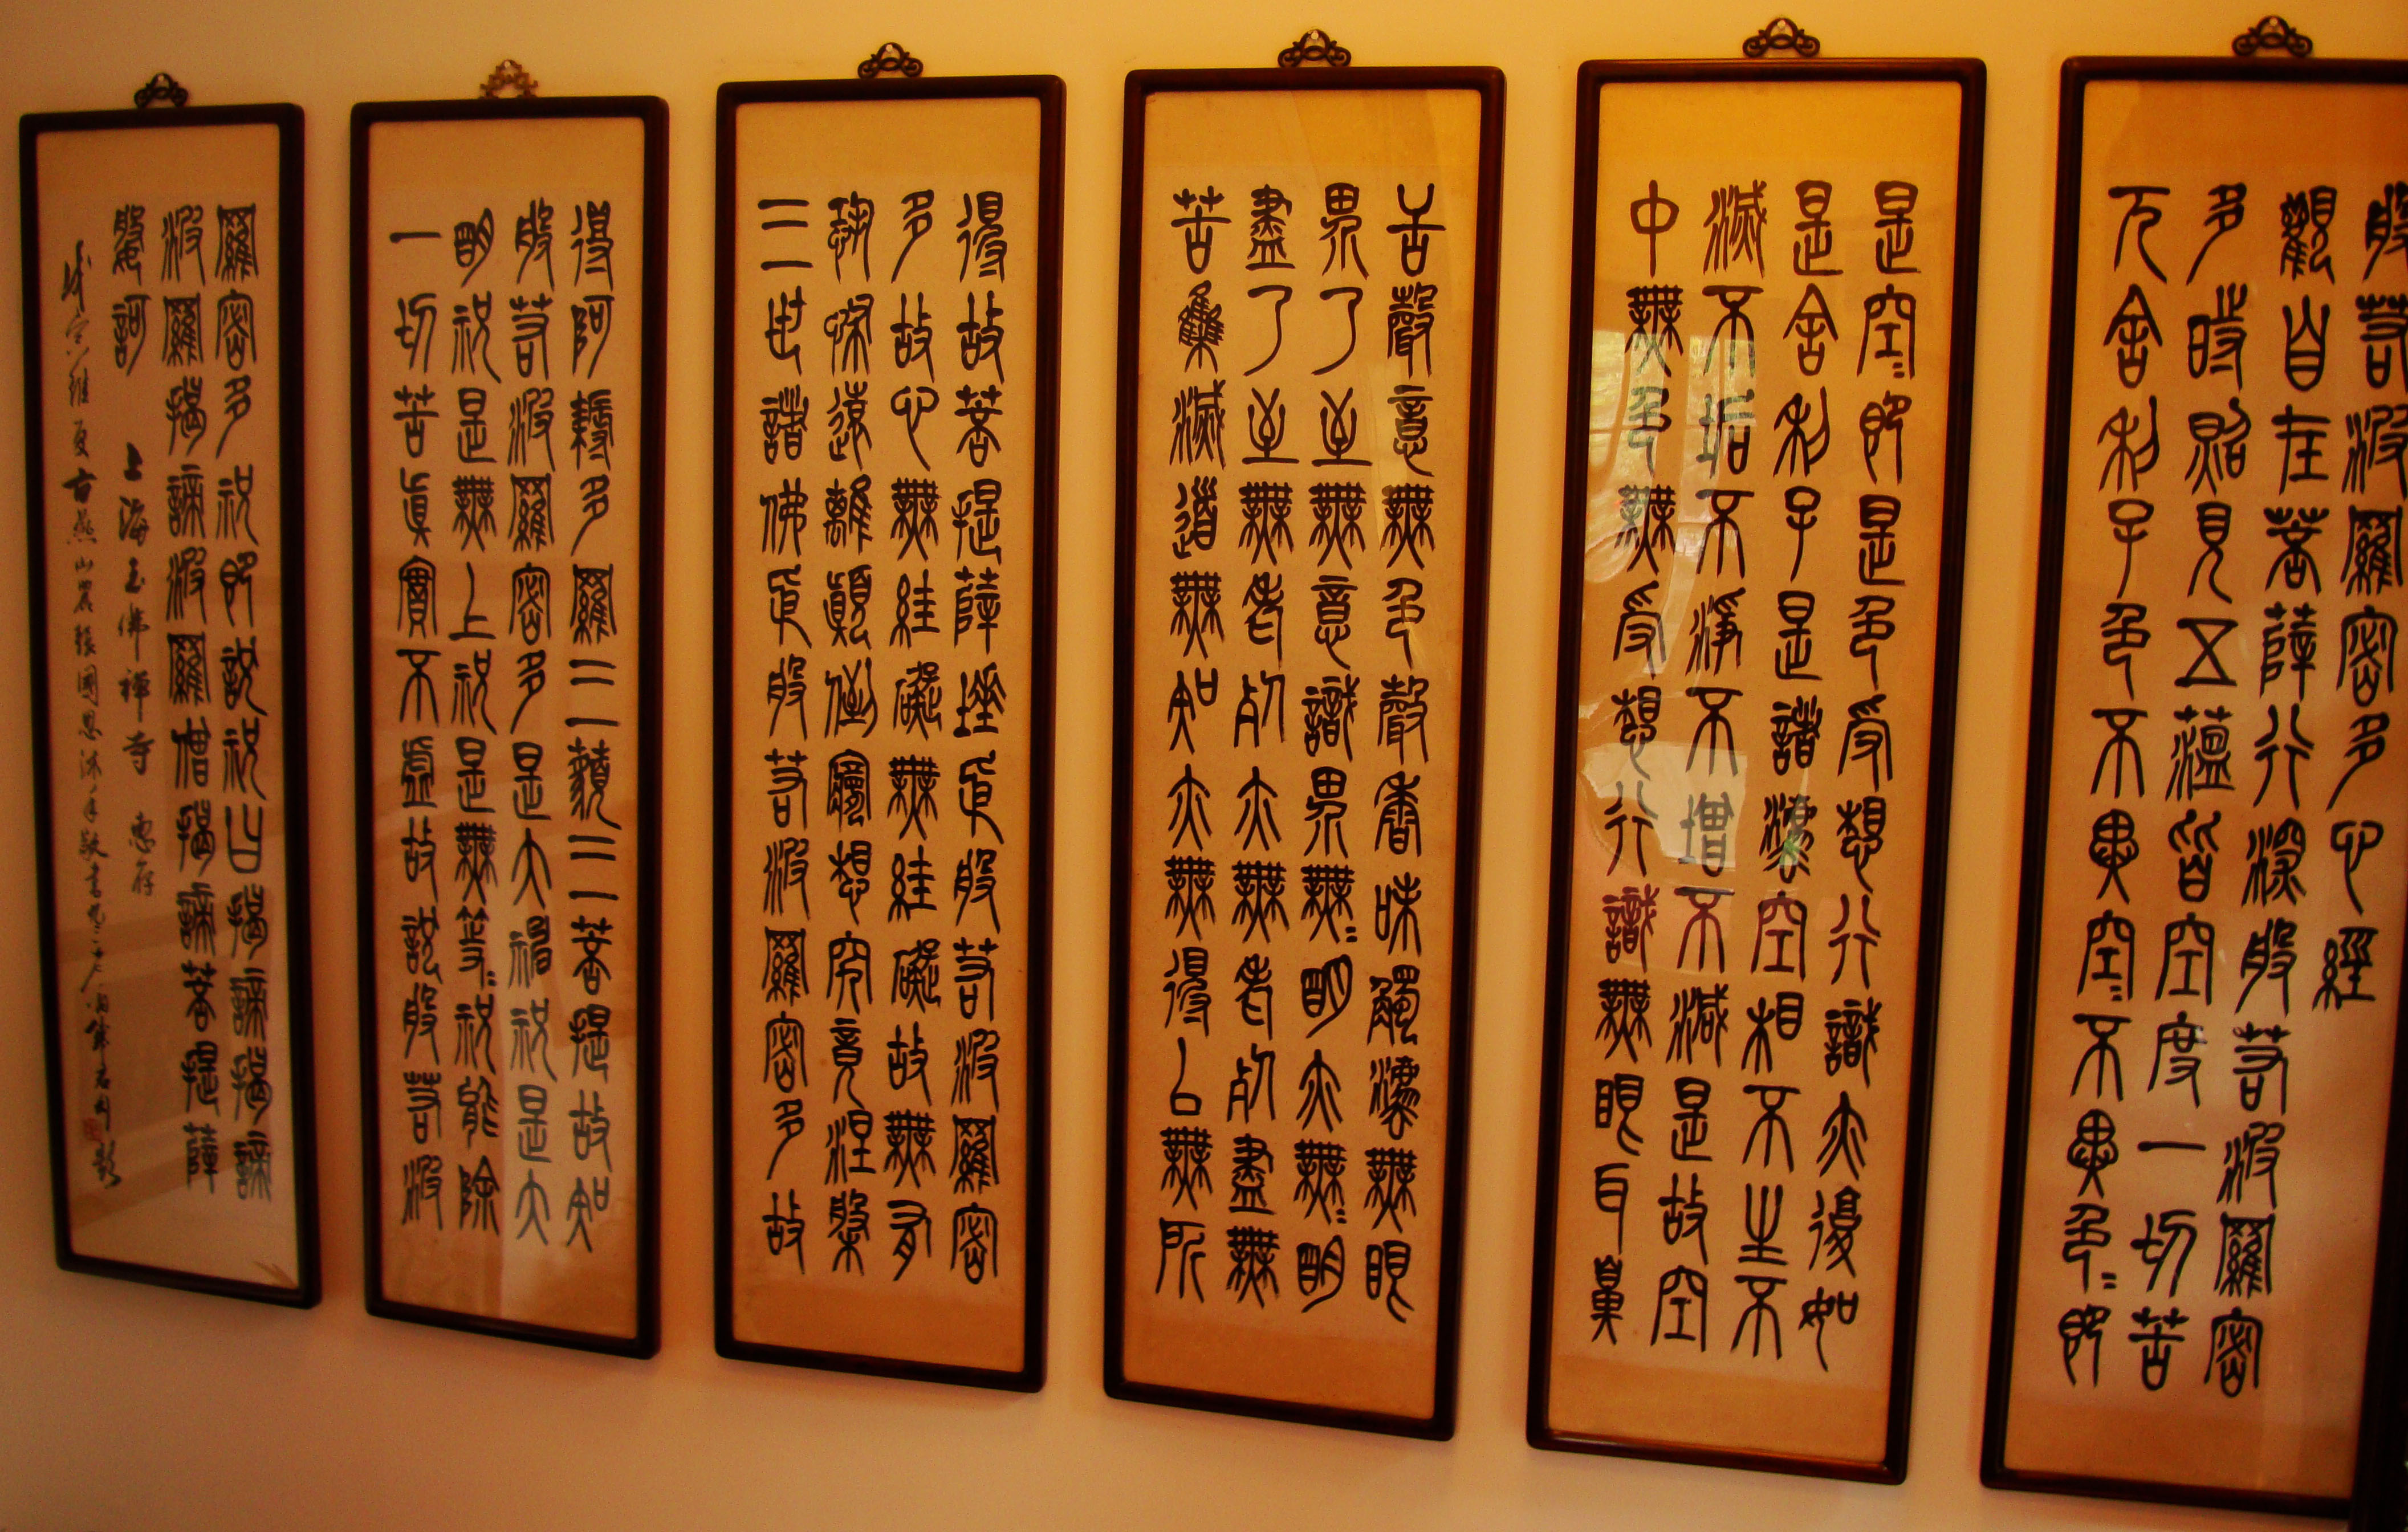 般若波羅密多心經
觀自在菩薩行深般若波羅密
多時照見五蘊皆空度一切苦
厄舍利子色不異空〻不異色〻即
是空〻即是色受想行識亦復如
是舍利子是諸法空相不生不
滅不垢不淨不增不減是故空
中無色無受想行識無眼耳鼻
舌聲意無色聲香味觸法無眼
界乃至無意識界無〻明亦無〻明
盡乃至無老死亦無老死盡無
苦集滅道無知亦無得以無所
得故菩提薩埵依般若波羅密
多故心無絓礙無絓礙故無有
恐怖遠離顛倒夢想究竟涅槃
三世諸佛依般若波羅密多故
得阿耨多羅三藐三菩提故知
般若波羅密多是大神祝是大
明祝是無上祝是無等〻祝能除
一切苦真實不虛故說般若波
羅密多祝即說祝曰揭諦揭諦
波羅揭諦波羅僧揭諦菩提薩
婆訶 上海玉佛禪寺 惠存
戊寅維夏古燕山農張國恩沐手敬書